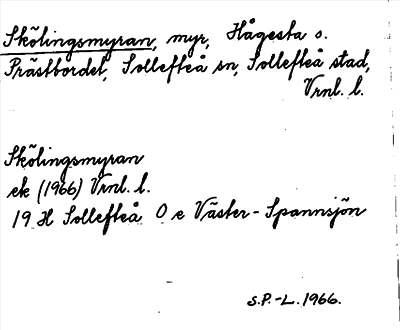 Skölingsmyran, myr, Hågesta o.
Prästbordet, Sollefteå sn, Sollefteå stad,
Vrnl. l.
Skölingsmyran
ek (1966) Vrnl. l.
19 H Sollefteå O e Väster-Spannsjön
S.P.-L. 1966.